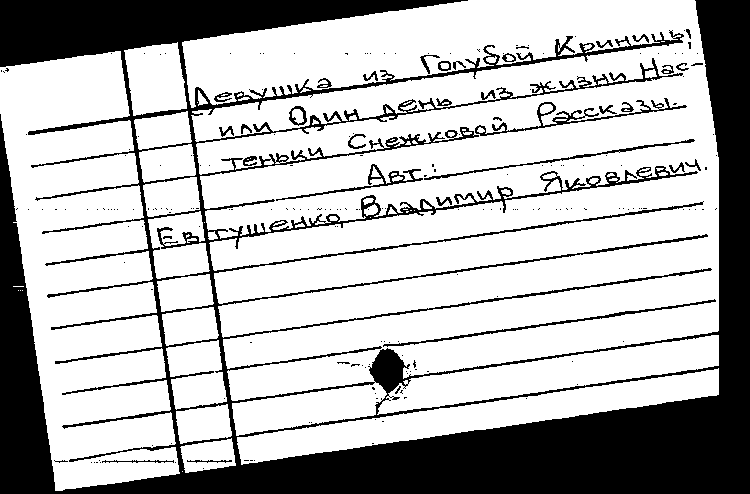 Девушка из Голубой Криницы,
или Один день из жизни Нас-
теньки Снежковой. Рассказы.
Авт.:
Евтушенко, Владимир Яковлевич.